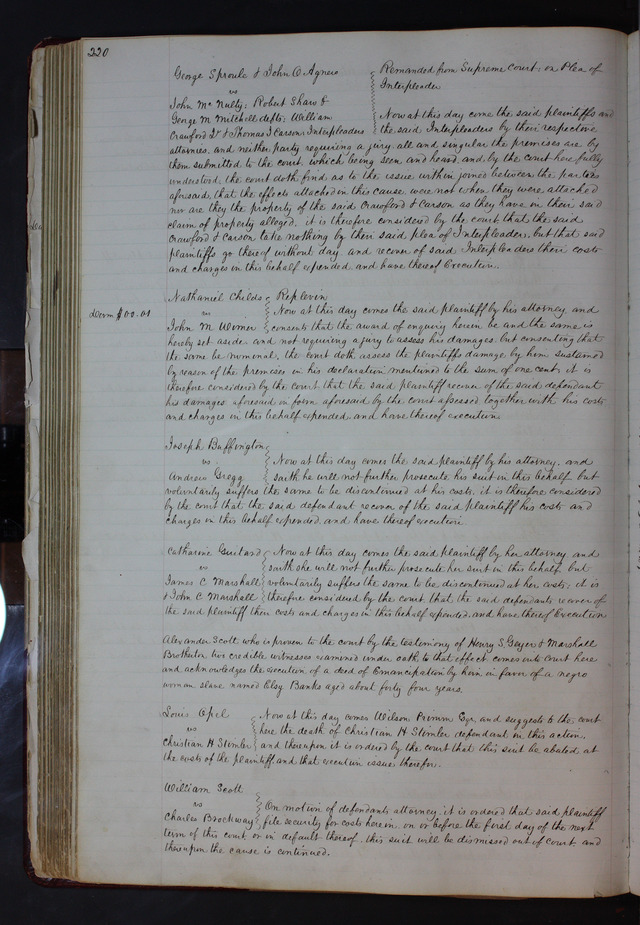 220
George Sproule & John O Agnew
vs
John McNulty; Robert Shaw &
George M Mitchell defts; William
Crawford Jr & Thomas J Carson, Interpleaders
Remanded from Supreme Court; on Plea of
Interpleader
Now at this day come the said plaintiffs and
the said Interpleaders by their respective
attornies, and neither party requiring a jury all and singular the premises are by
them submitted to the court, which being seen and heard and by the court here fully
understood, the court doth find as to the issue within joined between the parties
aforesaid, that the effects attached in this cause were not when they were attached
nor are they the property of the said Crawford & Carson as they have in their said
claim of property alleged, it is therefore considered by the court that the said
Crawford & Carson take nothing by their said plea of Interpleader, but that said
plaintiffs go thereof without day and recover of said Interpleaders their costs
and charges in this behalf expended and have thereof Execution.
Nathaniel Childs
vs
John M Wimer
$00.01
Replevin
Now at this day comes the said plaintiff by his attorney and
consents that the award of enquiry herein be and the same is
hereby set aside and not requiring a jury to assess his damages but consenting that
the same be nominal, the court doth assess the plaintiffs damage by him sustained
by reason of the premises in his declaration mentioned to the sum of one cent, it is
therefore considered by the court that the said plaintiff recover of the said defendant
his damages aforesaid in form aforesaid by the court assessed together with his costs
and charges in this behalf expended and have thereof execution.
Joseph Buffington
vs
Andrew Gregg
Now at this day comes the said plaintiff by his attorney, and
saith he will not further prosecute his suit in this behalf but
voluntarily suffers the same to be discontinued at his costs, it is therefore considered
by the court that the said defendant recover of the said plaintiff his costs and
charges in this behalf expended and have thereof execution.
Catharine
vs
James C Marshall
& John C Marshall
Now at this day comes the said plaintiff by her attorney and
saith she will not further prosecute her suit in this behalf but
voluntarily suffers the same to be discontinued at her costs; it is
therefore considered by the court that the said defendants recover of
the said plaintiff their costs and charges in this behalf expended, and have thereof Execution
Alexander Scott who is proven to the court by the testimony of Henry S Geyer & Marshall
Brotherton two credible witnesses examined under oath to that effect comes into court here
and acknowledges the execution of a deed of Emancipation by him in favor of a negro
woman slave named Elsy Banks aged about forty four years.
Louis Apel
vs
Christian H Stemler
Now at this day comes Wilson Primm Esqr and suggests to the court
here the death of Christian H Stemler defendant in this action,
and thereupon it is ordered by the court that this suit be abated at
the costs of the plaintiff and that execution issue therefor.
William Scott
vs
Charles Brockway
On motion of defendants attorney, it is ordered that said plaintiff
file security for costs herein on or before the first day of the next
term of this court or in default thereof, this suit will be dismissed out of court and
thereupon the cause is continued.